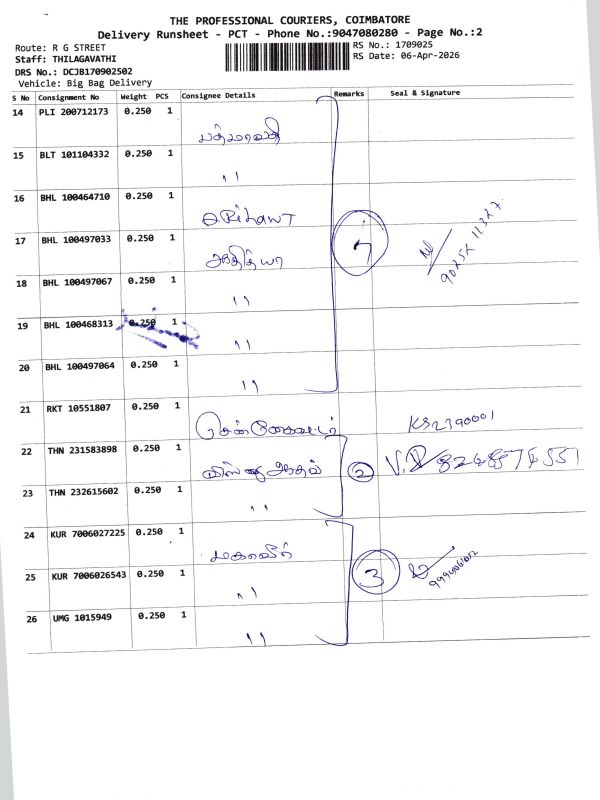 THE PROFESSIONAL COURIERS, COIMBATORE
Delivery Runsheet - PCT - Phone No.:9047080280 - Page No.:2
Route: R G STREET
RS No.: 1709025
Staff: THILAGAVATHI
RS Date: 06-Apr-2026
DRS No.: DCJB170902502
Vehicle: Big Bag Delivery
S No Consignment No Weight PCS Consignee Details Remarks Seal & Signature
14 PLI 200712173 0.250 1
பத்மாவதி
15 BLT 101104332 0.250 1
"
16 BHL 100464710 0.250 1
17 BHL 100497033 0.250 1
7
18 BHL 100497067 0.250 1
"
19 BHL 100468313 0.250 1
"
20 BHL 100497064 0.250 1
"
21 RKT 10551807 0.250 1
22 THN 231583898 0.250 1
2
23 THN 232615602 0.250 1
"
24 KUR 7006027225 0.250 1
மகாவீர்
25 KUR 7006026543 0.250 1
3
"
26 UMG 1015949 0.250 1
"